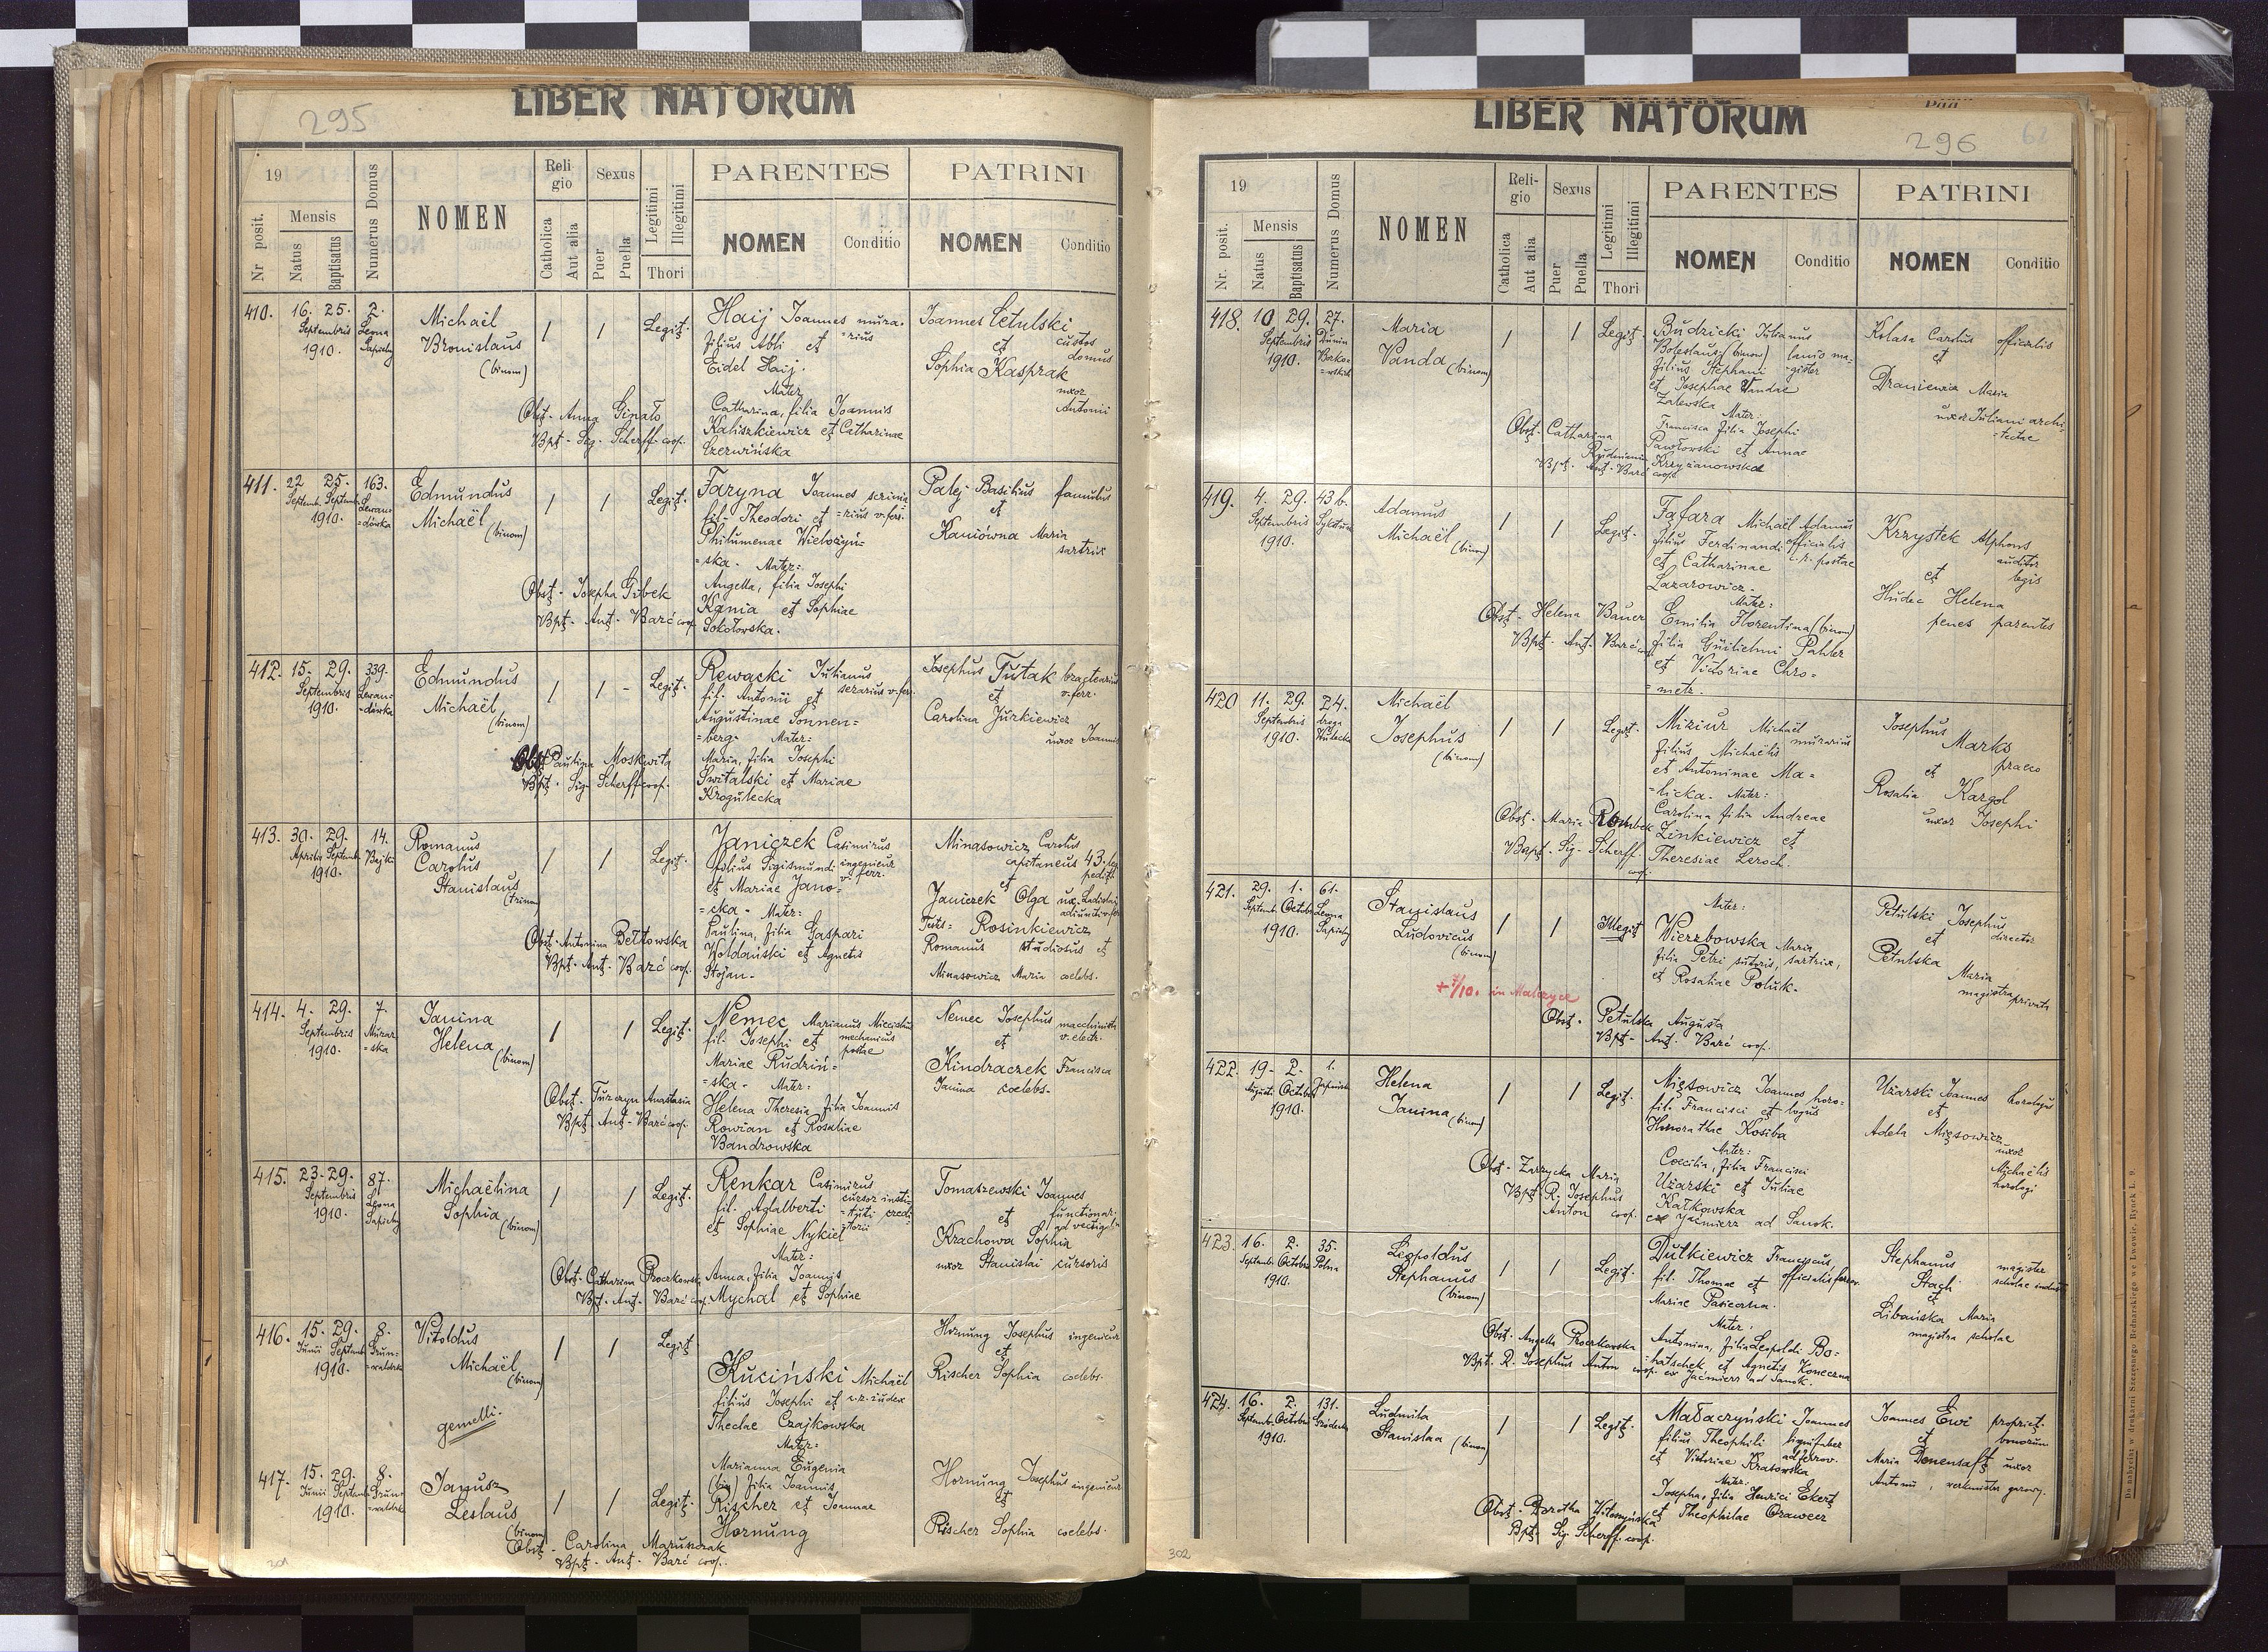 295
LIBER NATORUM
19
Nr posit.
Mensis
Natus
Baptisatus
Numerus Domus
NOMEN
Reli-
gio
Catholica
Aut alia
Sexus
Puer
Puella
Legitimi
Illegitimi
Thori
PARENTES
NOMEN
Conditio
PATRINI
NOMEN
Conditio
410. 16. 25. 2.
Septembris Leona
1910. Sapiehy
Michaël
Bronislaus
(binom)
/ / Legit.
Haij Joannes mura-
filius Abli et =rius
Eidel Haij.
Mater
Catharina, filia Joannis
Kaliszkiewicz et Catharinae
Czerwińska
Joannes Cetulski
et custos
domus
Sophia Kasprak
uxor
Antonii
Obst. Anna Ginało
Bpt. Sig. Scherff coop.
411. 22 25. 163.
Septemb. Septemb. Lewan-
1910. =dówka
Edmundus
Michaël
(binom)
/ / Legit.
Faryna Joannes scrinia
fil. Theodori et =rius v. ferr.
Philumenae Wielożyń-
=ska. Mater:
Angella, filia Josephi
Kania et Sophiae
Sokołowska.
Palej Basilius famulus
et
Kaniówna Maria
sartrix
Obst. Josepha Gibek
Bpt. Ant. Barć coop.
412. 15. 29. 339.
Septembris Lewan-
1910. =dówka
Edmundus
Michaël
(binom)
/ / - Legit.
Rewacki Julianus
fil. Antonii et serarius v. ferr.
Augustinae Sonnen=
=berg. Mater:
Maria, filia Josephi
Świtalski et Mariae
Krogulecka
Josephus Tutak bractearius
et v. ferr.
Carolina Jurkiewicz
uxor Joannis
Obst. Paulina Moskwita
Bpt. Sig. Scherff coop.
413. 30. 29. 14.
Aprilis Septemb. Bajki
1910.
Romanus
Carolus
Stanislaus
(trinom)
/ / Legit.
Janiczek Casimirus
filius Sigismundi ingenieur
et Mariae Jano= v. ferr.
=cka. Mater:
Paulina, filia Gaspari
Wołdański et Agnetis
Stojan.
Minasowicz Carolus
capitaneus 43. leg.
et pedit.
Janiczek Olga ux. Ladislai
adiuncti v. ferr.
Test= Rosinkiewicz
Romanus studiosus et
Minasowicz Maria coelebs.
Obst. Antonina Bełtowska
Bpt. Ant. Barć coop.
414. 4. 29. 7.
Septembris Murar-
1910. =ska
Janina
Helena
(binom)
/ / Legit.
Nemec Marianus Miecislaus
fil. Josephi et mechanicus
Mariae Rudziń= postae
=ska. Mater:
Helena Theresia filia Joannis
Rowian et Rosaliae
Bandrowska
Nemec Josephus macchinista
et v. electr.
Kindraczek Francisca
Janina coelebs.
Obst. Turczyn Anastasia
Bpt. Ant. Barć coop.
415. 23. 29. 87.
Septembris Leona
1910. Sapiehy
Michaëlina
Sophia (binom)
/ / Legit.
Renkar Casimirus
fil. Adalberti cursor insti-
et Sophiae Nykiel =tuti credi-
=torii
Mater:
Anna, filia Joannis
Mychal et Sophiae
Tomaszewski Joannes
et functionar.
ad vectigal
Krachowa Sophia
uxor Stanislai cursoris
Obst. Catharina Proczkowska
Bpt. Ant. Barć coop.
416. 15. 29. 8.
Junii Septemb. Grun-
1910. =waldzka
Vitoldus
Michaël
(binom)
/ / Legit
gemelli.
Kuciński Michaël
filius Josephi et c. r. iudex
Theclae Czajkowska
Mater:
Marianna Eugenia
(bin) filia Joannis
Rischer et Joannae
Hornung
Hornung Josephus ingenieur
et
Rischer Sophia coelebs.
417. 15. 29. 8.
Junii Septemb. Grun-
1910. =waldzka
Janusz
Leslaus
(binom)
/ / Legit.
Hornung Josephus ingenieur
et
Rischer Sophia coelebs.
Obst. Carolina Maruszczak
Bpt. Ant. Barć coop.
301
296
LIBER NATORUM
19
Nr. posit.
Mensis
Natus
Baptisatus
Numerus Domus
NOMEN
Reli-
gio
Catholica
Aut alia
Sexus
Puer
Puella
Legitimi
Illegitimi
Thori
PARENTES
NOMEN
Conditio
PATRINI
NOMEN
Conditio
418. 10. 29. 27.
Septembris Dunin
1910. Borkow-
=skich
Maria
Vanda (binom)
/ / Legit.
Budzicki Julianus
Boleslaus (binom) lanio ma-
filius Stephani =gister
et Josephae Vandae
Zalewska Mater:
Francisca filia Josephi
Pawłowski et Annae
Krzyżanowska
Kolasa Carolus officialis
et
Draniewicz Maria
uxor Juliani archi-
=tectae
Obst. Catharina
Rudnicka
Bpt. Ant. Barć coop.
419. 4. 29. 43 b.
Septembris Sykstuska
1910.
Adamus
Michaël (binom)
/ / Legit.
Fąfara Michaël Adamus
filius Ferdinandi officialis
et Catharinae c. r. postae
Lazarowicz.
Mater:
Emilia Florentina (binom)
filia Guilielmi Pahler
et Victoriae Chro=
=metz.
Krzystek Alphons
auditor
et legis
Hudec Helena
penes parentes
Obst. Helena Bauer
Bpt. Ant. Barć coop.
420 11. 29. 24.
Septembris droga
1910. Wulecka
Michaël
Josephus
(binom)
/ / Legit.
Miziur Michaël
filius Michaëlis murarius
et Antoninae Ma=
=licka. Mater:
Carolina filia Andreae
Zinkiewicz et
Theresiae Leroch.
Josephus
Marks
et praeco
Rosalia Kargol
uxor Josephi
Obst. Maria Rombek
Bapt. Sig. Scherff.
coop.
421. 29. 1. 61.
Septemb. Octobr. Leona
1910. Sapiehy
Stanislaus
Ludovicus
(binom)
/ / Illegit.
+ 7/10. in Malczyce
Mater:
Wierzbowska Maria
filia Petri sutoris, sartrix,
et Rosaliae Poluk.
Petulski Josephus
et director
Petulska
Maria
magistra privata
Obst. Petulska Augusta
Bpt. Ant. Barć coop.
422. 19. 2. 1.
Augusti Octobris
1910.
Helena
Janina (binom)
/ / Legit.
Mięsowicz Joannes horo=
fil. Francisci et logus
Honorathae Kosiba
Mater:
Coecilia, filia Francisci
Użarski et Juliae
Kałkowska
ex Jaćmierz ad Sanok.
Użarski Joannes horologus
et
Adela Mięsowicz
uxor
Michaëlis
horologi
Obst. Zarzycka Maria
Bpt. R. Josephus
Anton coop.
423. 16. 2. 35.
Septemb. Octobris Polna
1910.
Leopoldus
Stephanus
(binom)
/ / Legit.
Dutkiewicz Franciscus,
fil. Thomae et officialis ferrov.
Mariae Pasieczna.
Mater:
Antonina, filia Leopoldi Bo=
=hatschek et Agnetis Koneczna
Stephanus magister
Stach scholae industr.
et
Libańska Maria
magistra scholae
Obst. Angella Proczkowska
Bpt. R. Josephus Anton coop. ex Jaćmierz ad Sanok.
424. 16. 2. 131.
Septemb. Octobris Gródecka
1910.
Ludmila
Stanislaa (binom)
/ / Legit.
Małaczyński Joannes
filius Theophili lignifaber
et Victoriae Krasowska ad ferrov.
Mater:
Josepha, filia Henrici Ekert
et Theophilae Orawecz
Joannes Ewi propriet.
et bonorum
Maria Donensaft uxor
Antonii, verkmistra gazowy.
Obst. Dorothea Witoszyńska
Bpt. Sig. Scherff. coop.
302
Do nabycia w drukarni Szczęsnego Bednarskiego we Lwowie, Rynek L. 9.